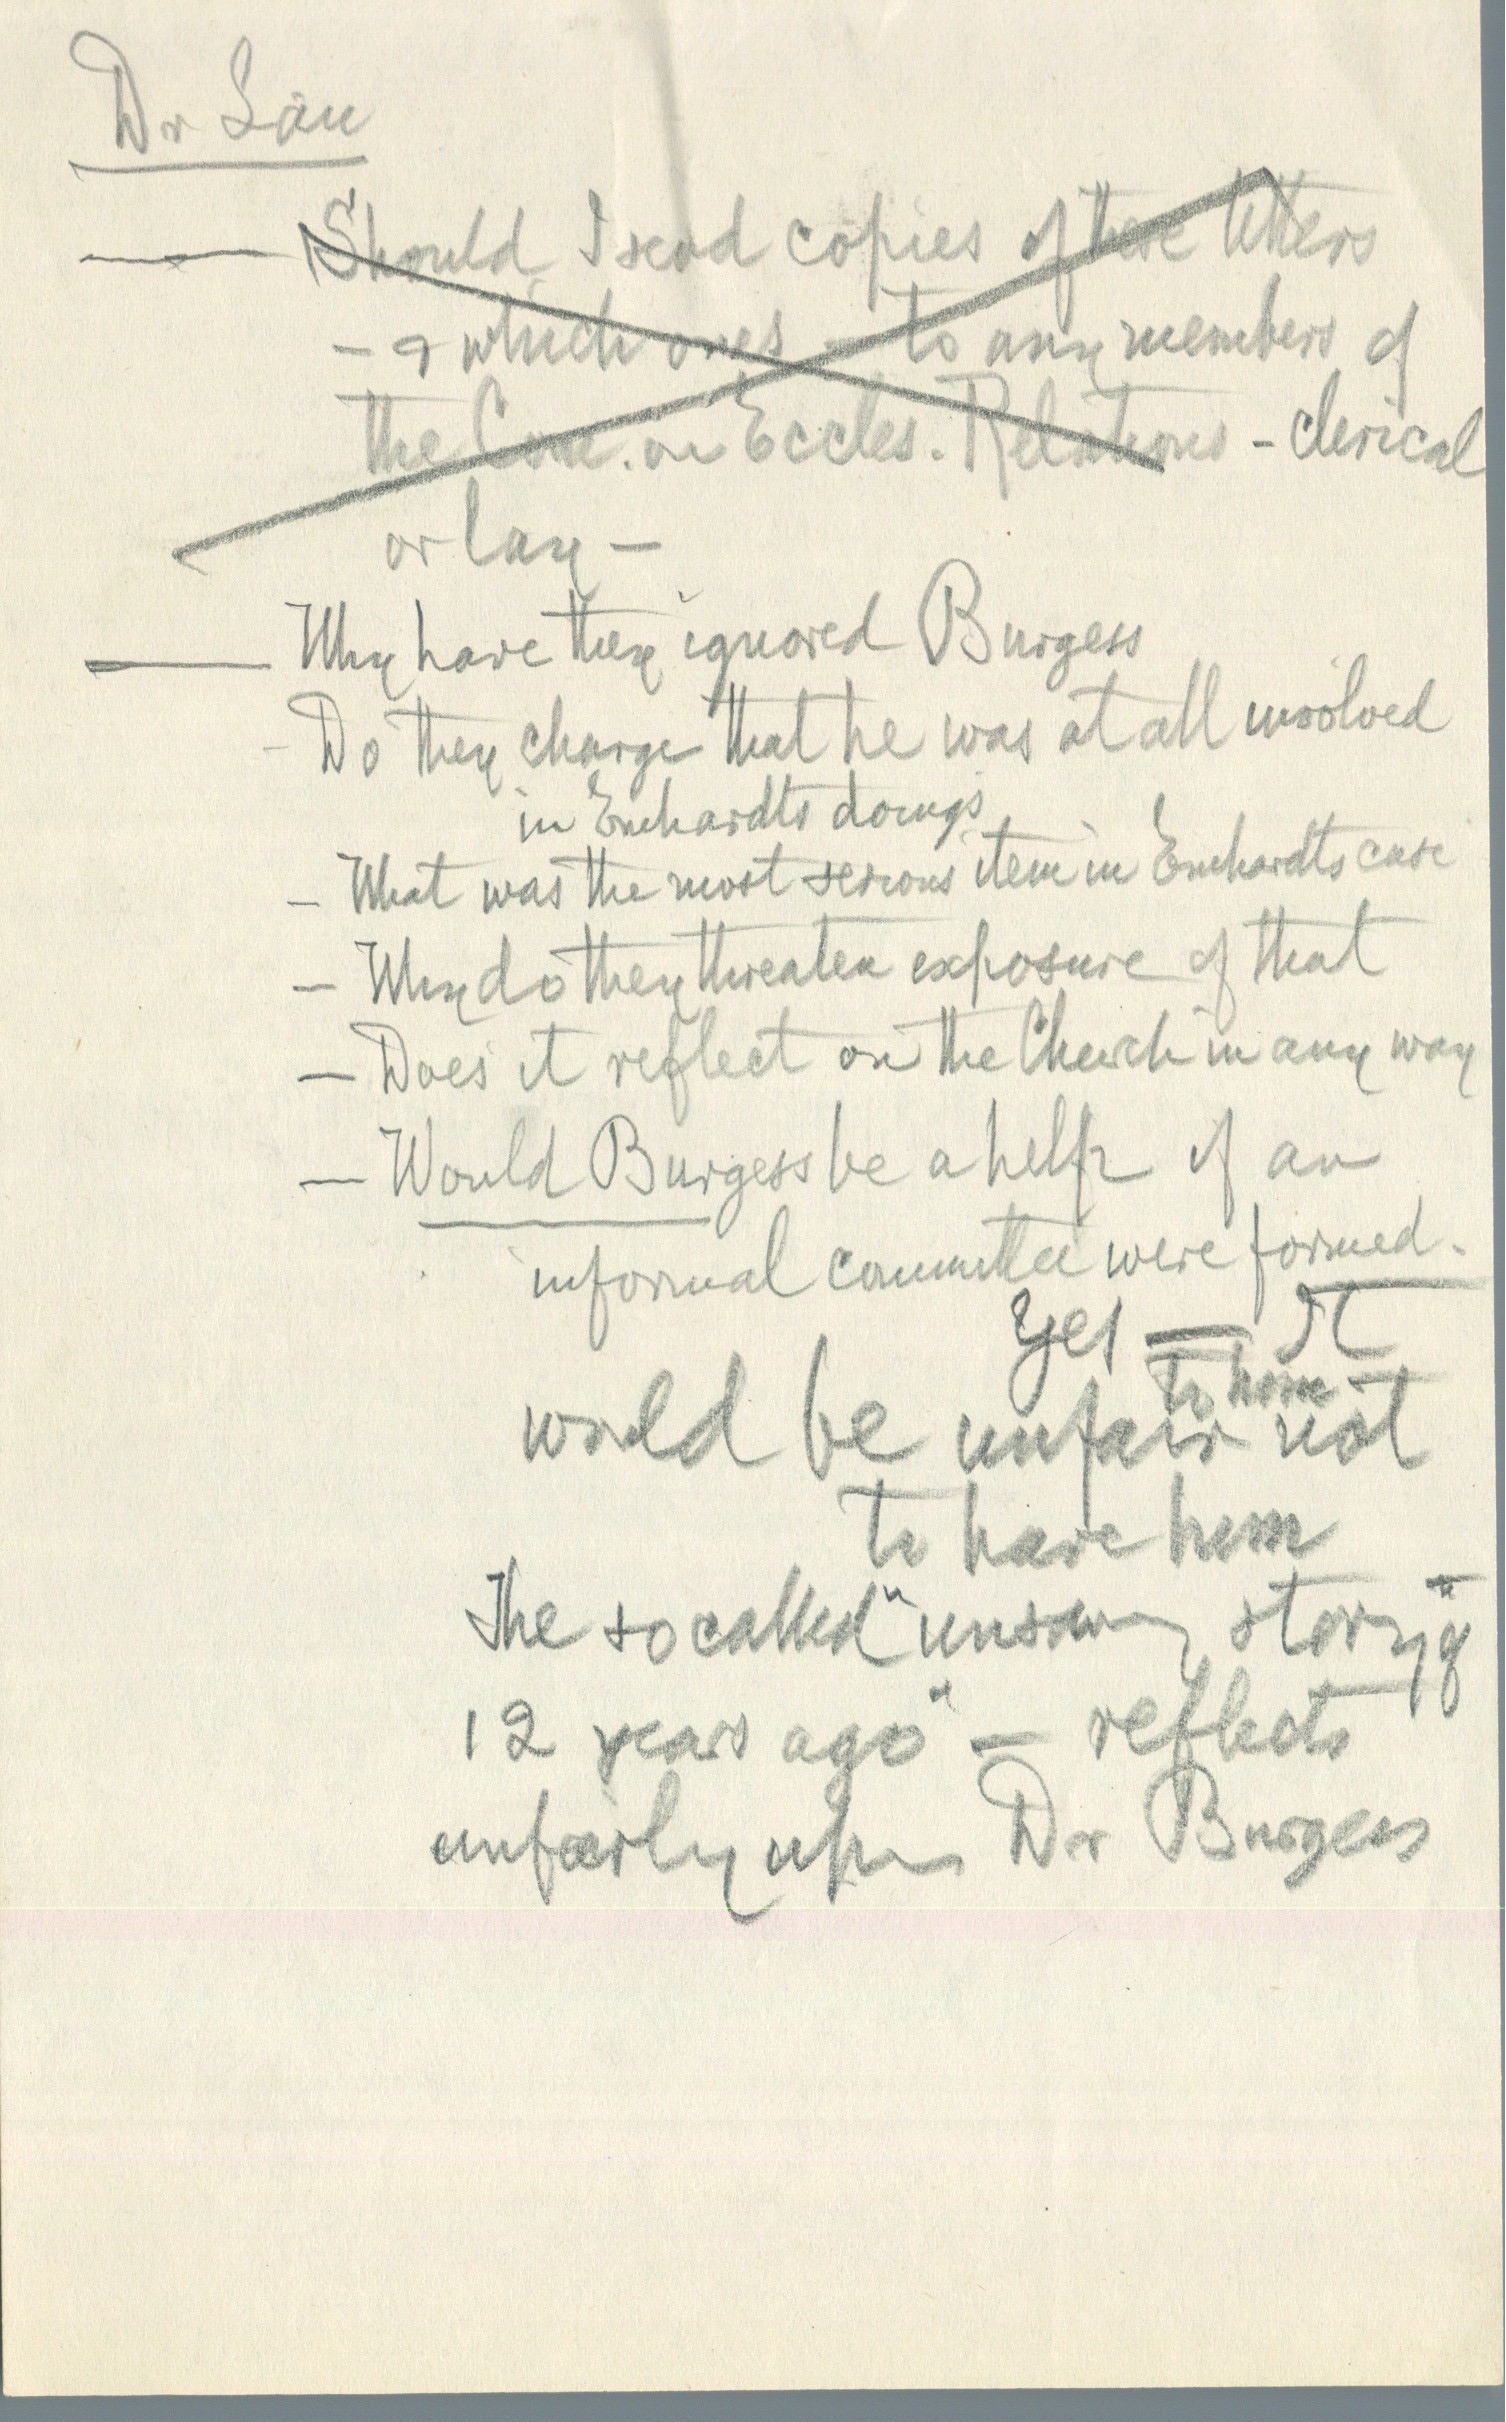 Dr Lau
— Should I send copies of these letters
- & which ones - to any members of
the Com. on Eccles. Relations - clerical
or lay -
— Why have they ignored Burgess
- Do they charge that he was at all involved
in Emhardts doings
- What was the most serious item in Emhardts case
- Why do they threaten exposure of that
- Does it reflect on the Church in any way
- Would Burgess be a help if an
informal committee were formed.
Yes — It
would be unfair to him not
to have him
The so called "unsavory story" of
12 years ago" — reflects
unfairly upon Dr Burgess